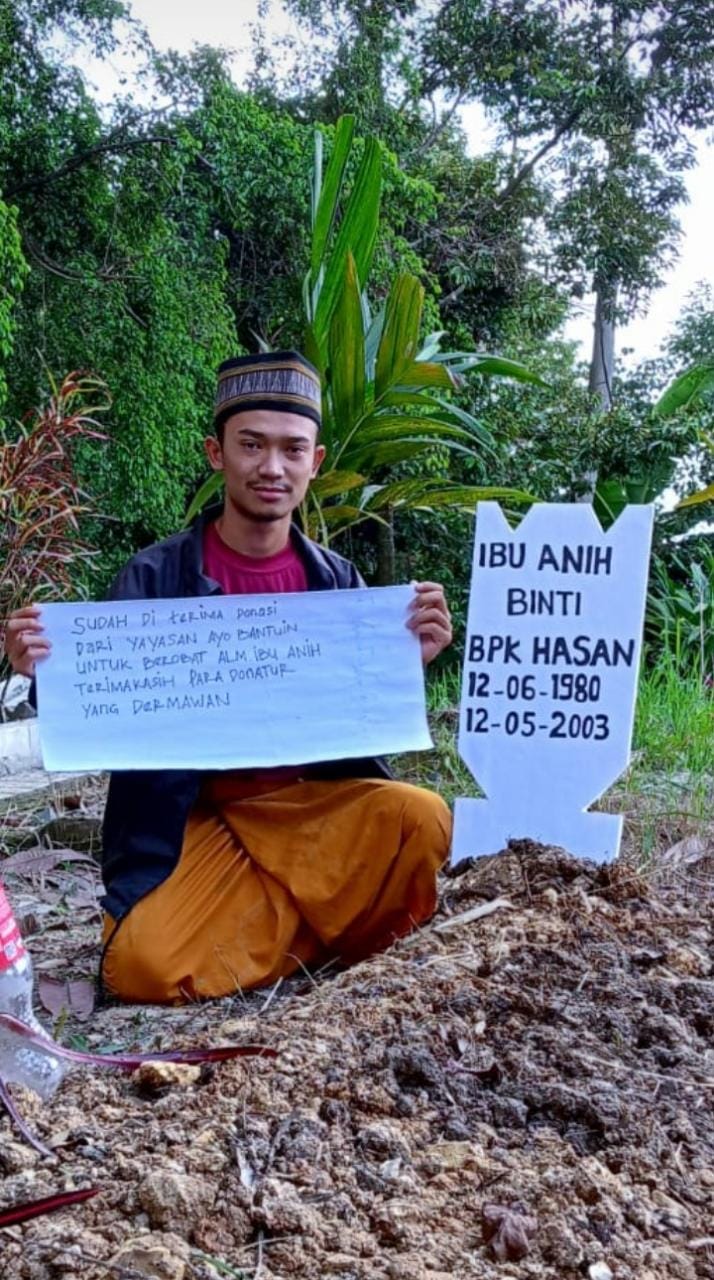 SUDAH Di teRimA Donasi
DARi YAYASAN AYO BANTUiN
UNTUK BEROBAT ALM iBU ANiH
TeRiMAKASiH PARA DONATUR
YANG DeRMAWAN
IBU ANIH
BINTI
BPK HASAN
12-06-1980
12-05-2003